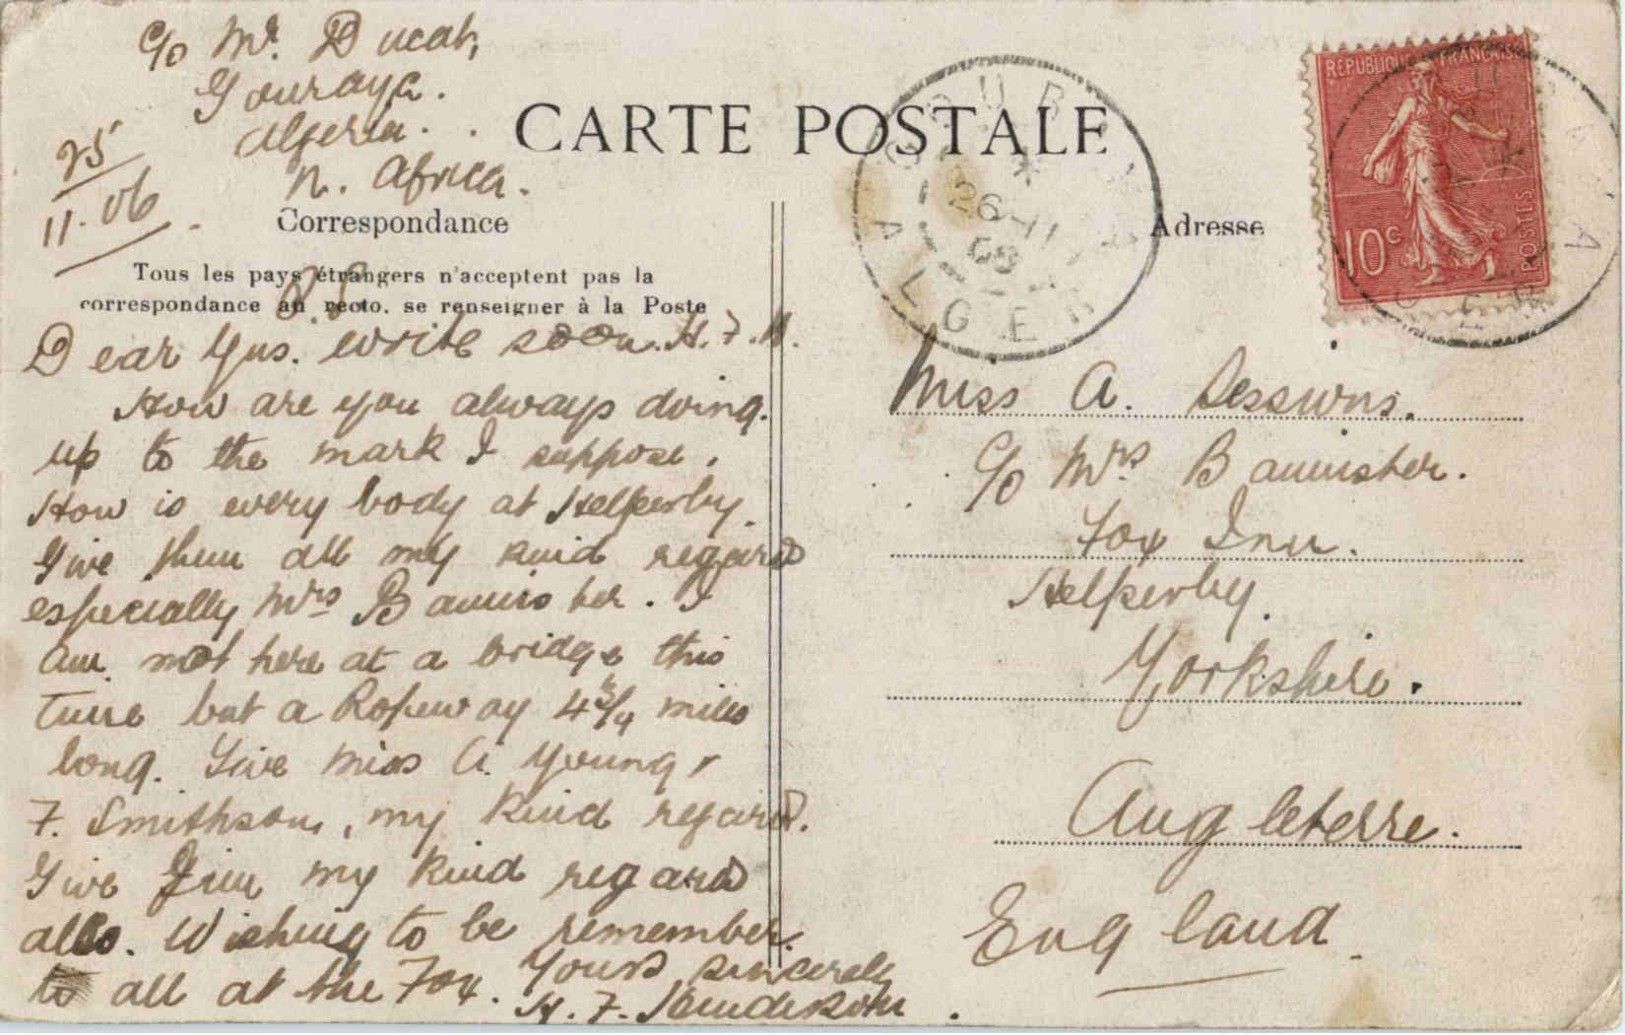 c/o Mr. Ducat,
Gouraya.
Algeria.
N. Africa.
25
11.06
CARTE POSTALE
Correspondance
Adresse
Tous les pays étrangers n'acceptent pas la
correspondance au recto, se renseigner à la Poste
P.S.
write soon. H.F.H.
Dear Gus.
How are you always doing.
up to the mark I suppose.
How is every body at Helperby.
Give them all my kind regard
especially Mrs Bannister. I
am not here at a bridge this
time but a Ropeway 4 3/4 miles
long. Give Miss A. Young &
F. Smithson, my kind regard.
Give Jim my kind regard
also. Wishing to be remember.
to all at the Fox. Yours sincerely
H. F. Henderson.
RÉPUBLIQUE FRANÇAISE
10c
POSTES
26-11
ALGER
Miss A. Sessions.
c/o Mrs Bannister.
Fox Inn.
Helperby.
Yorkshire.
Angleterre.
England